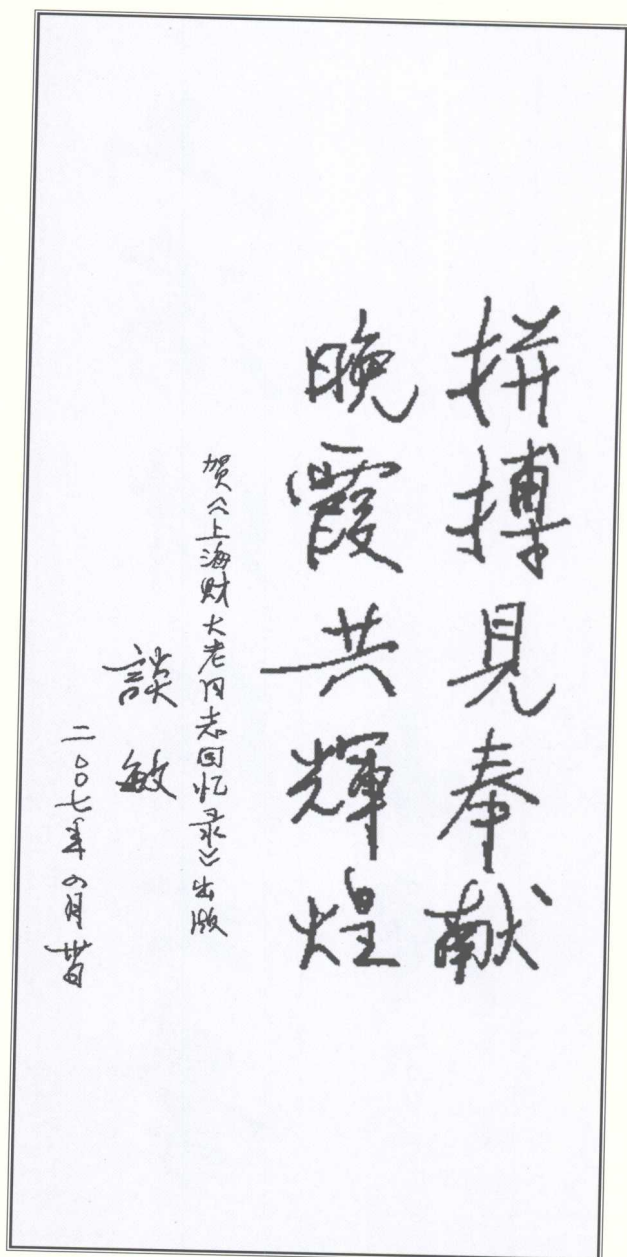 拼搏見奉献
晚霞共輝煌
贺《上海财大老同志回忆录》出版
談敏
二〇〇七年四月